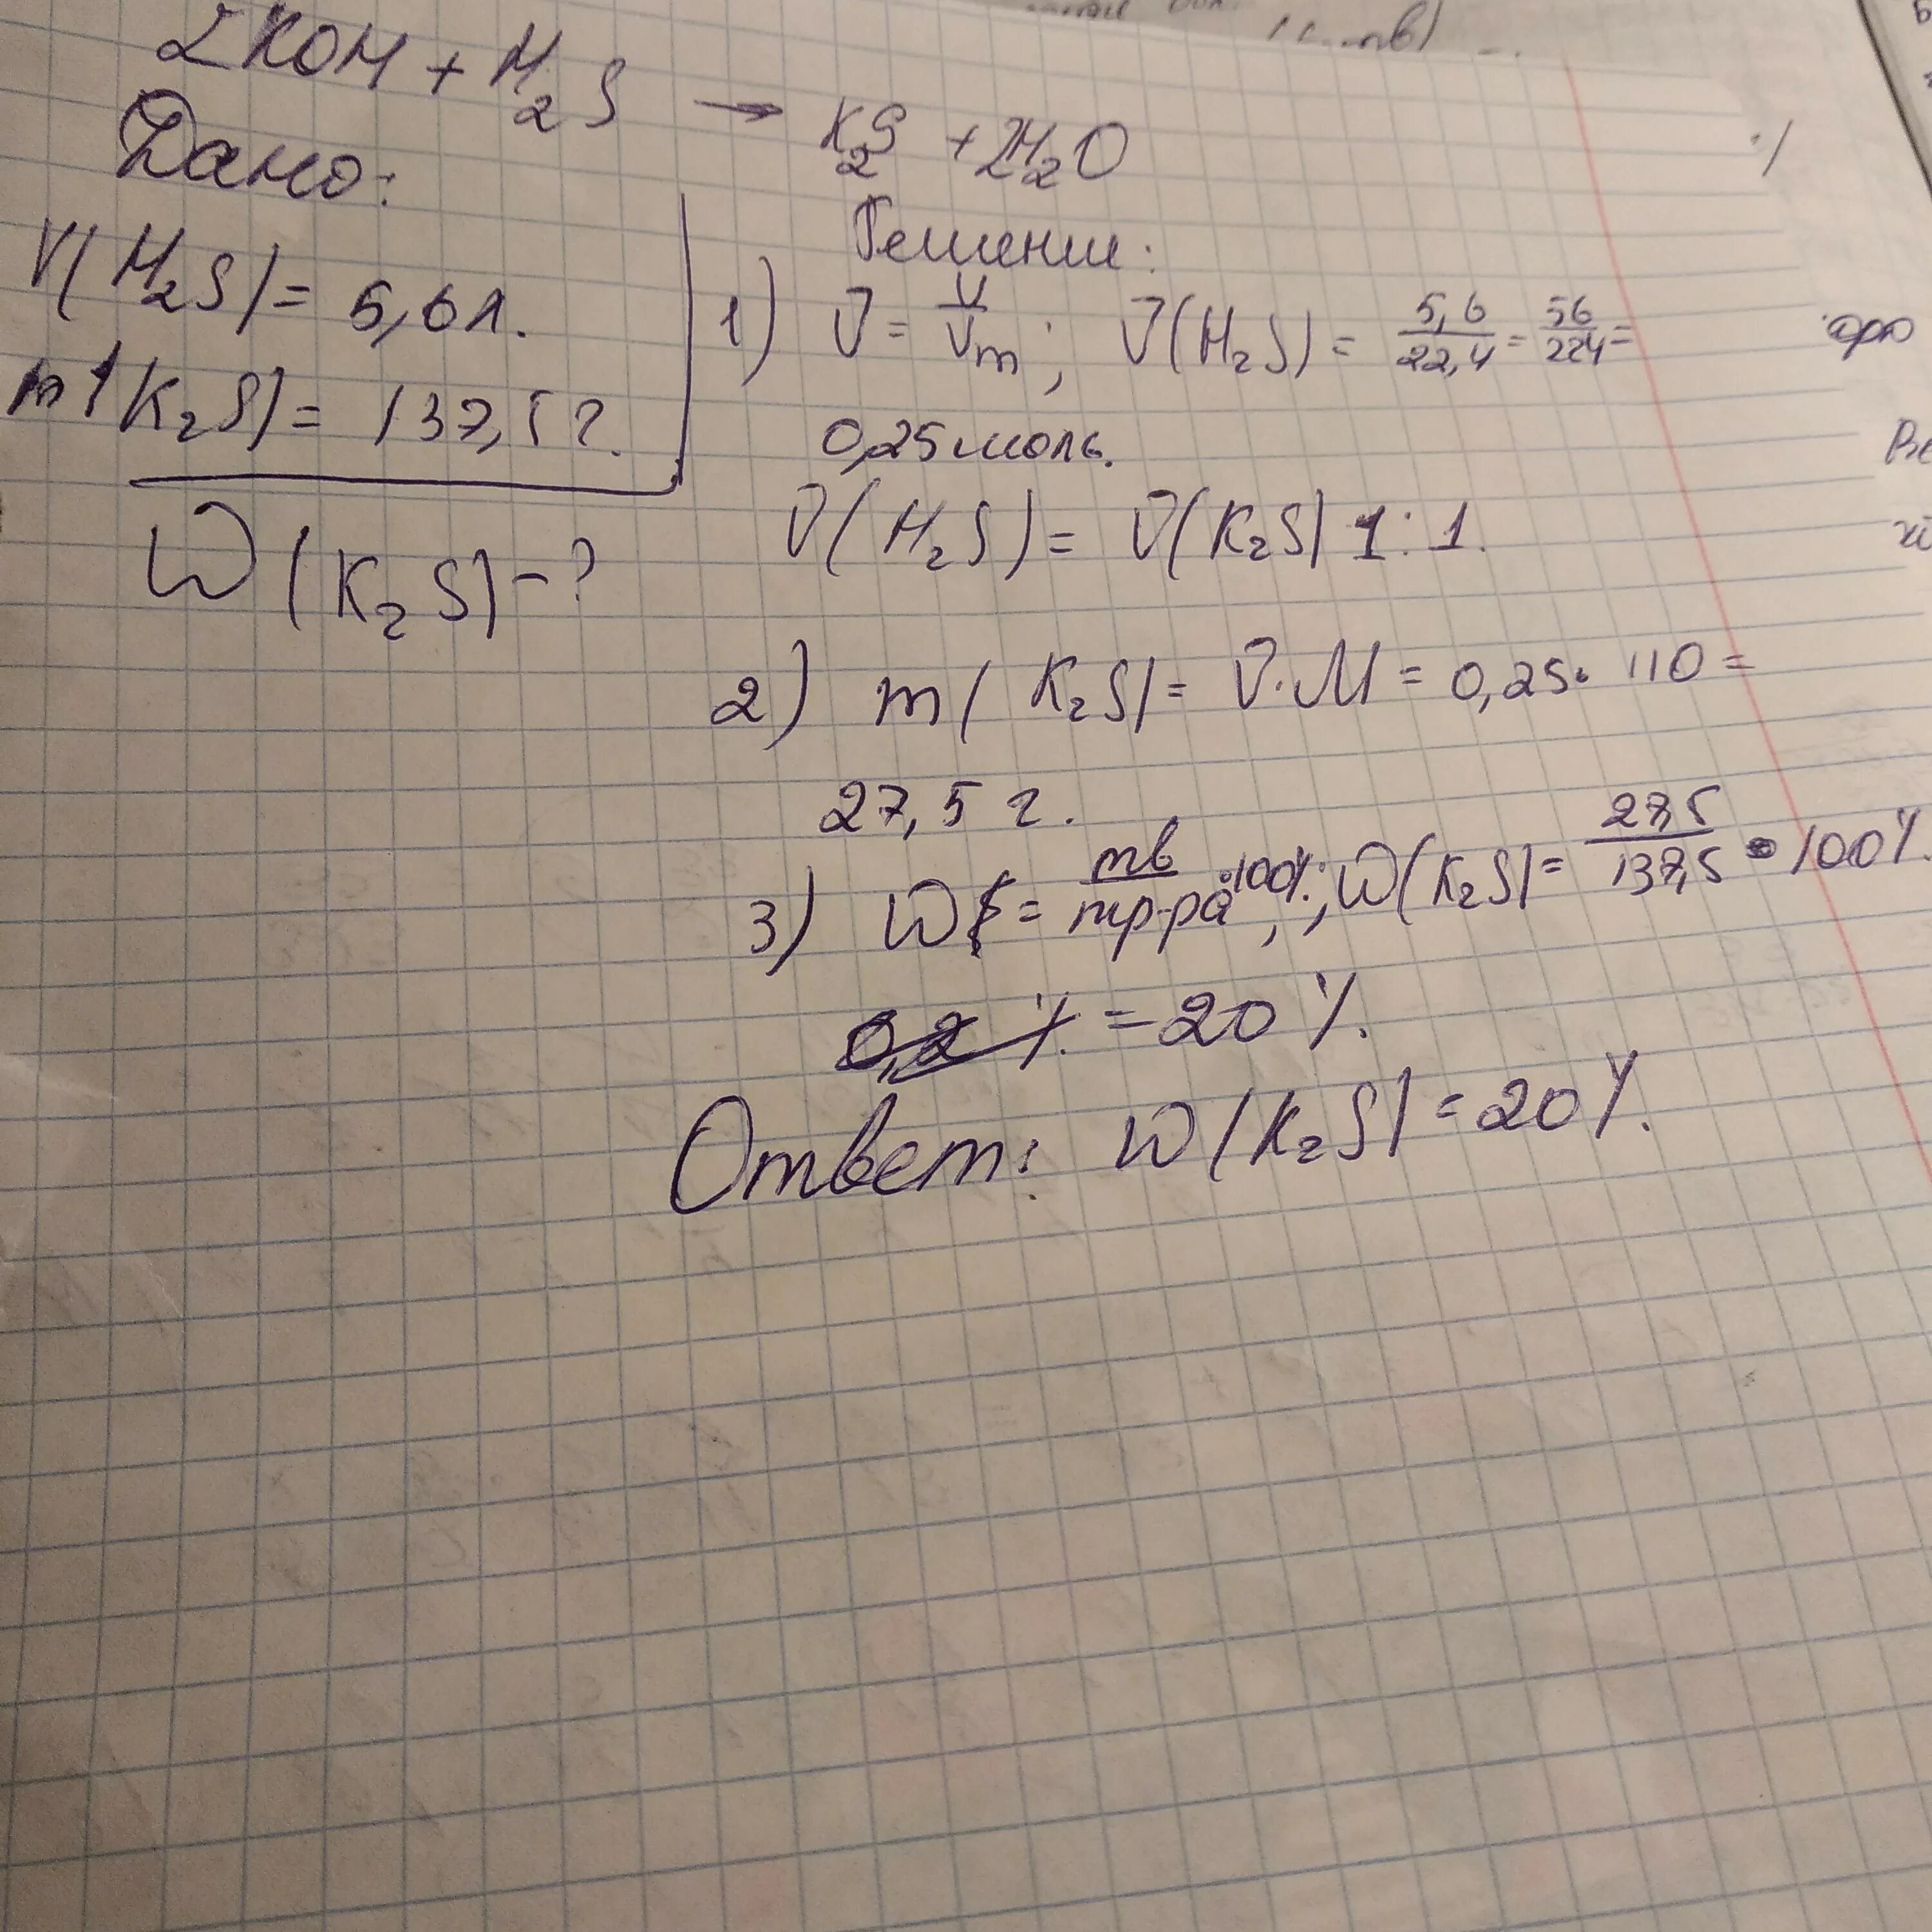 2KOH + H₂S → K₂S + 2H₂O
Дано:
V(H₂S) = 5,6 л.
m (K₂S) = 137,5 г.
W (K₂S) - ?
Решение:
1) ν = V/Vm ; ν(H₂S) = 5,6/22,4 = 56/224 =
0,25 моль.
ν(H₂S) = ν(K₂S) 1:1.
2) m(K₂S) = ν·M = 0,25 · 110 =
27,5 г.
3) W = mв/mр-ра ·100%; W(K₂S) = 27,5/137,5 · 100%
0,2 % = 20 %.
Ответ: W(K₂S) = 20%.